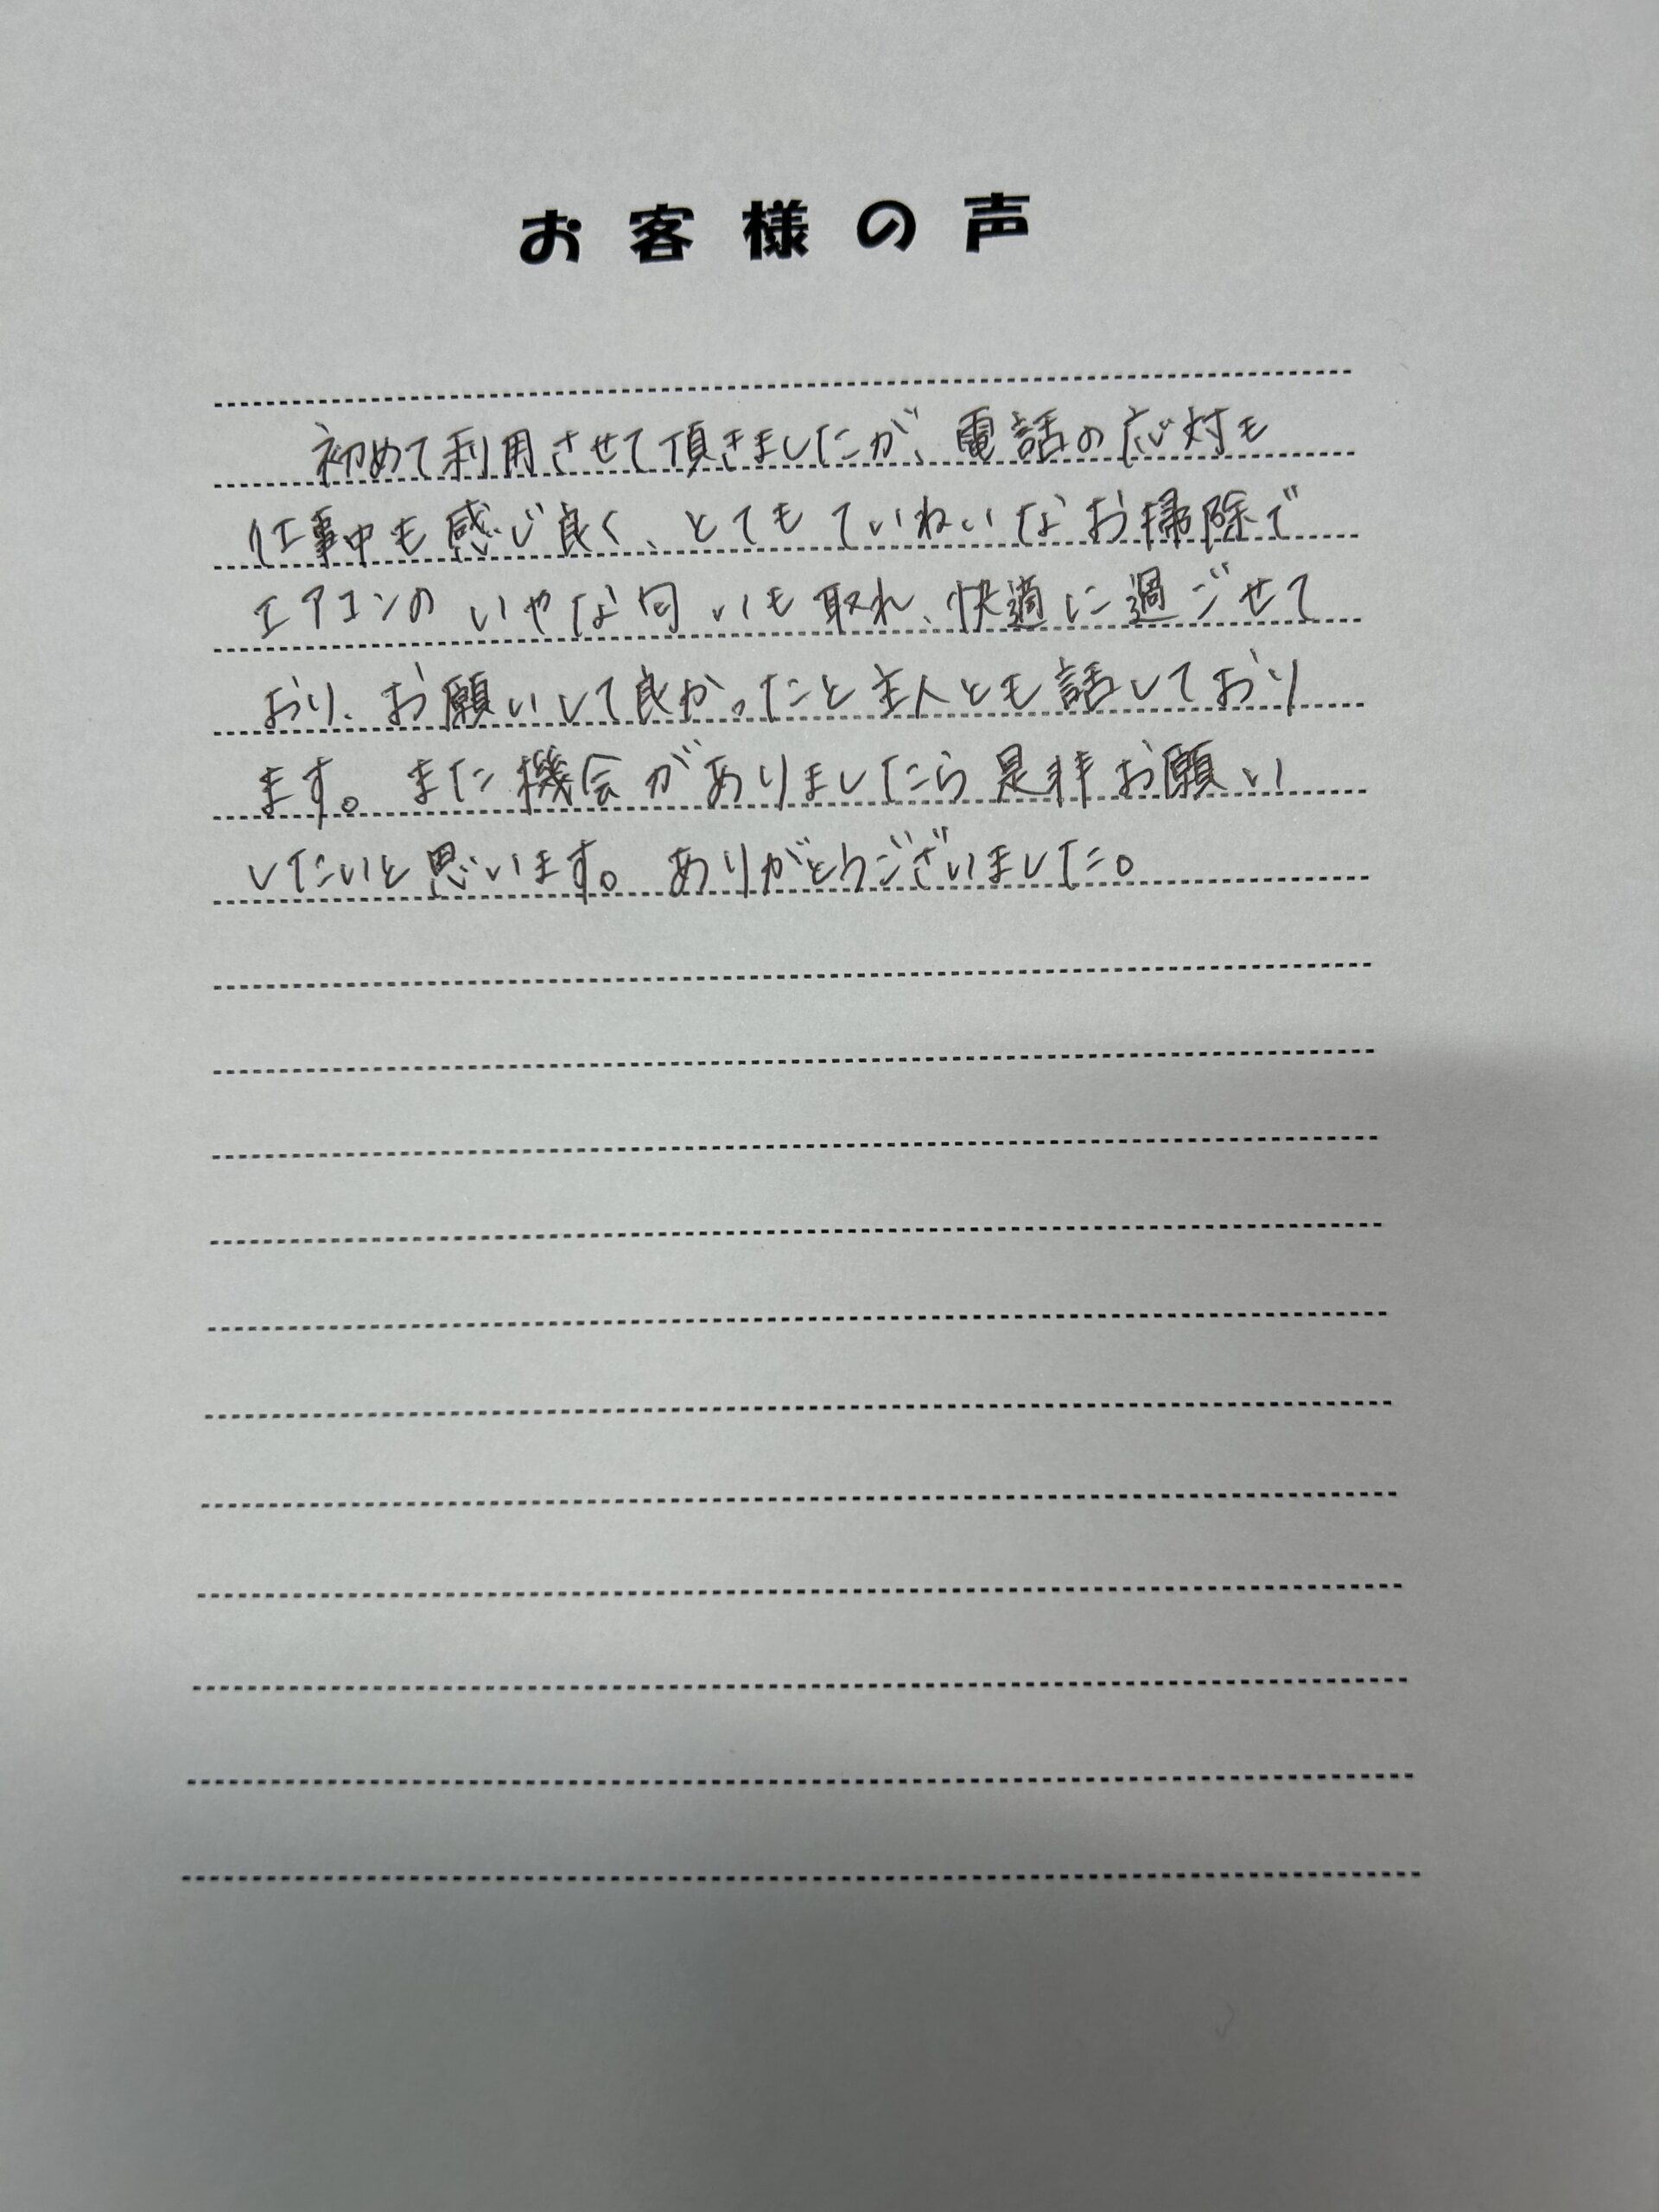 お客様の声
初めて利用させて頂きましたが、電話の応対も
仕事中も感じ良く、とてもていねいなお掃除で
エアコンのいやな匂いも取れ、快適に過ごせて
おり、お願いして良かったと主人とも話しており
ます。また機会がありましたら是非お願い
したいと思います。ありがとうございました。